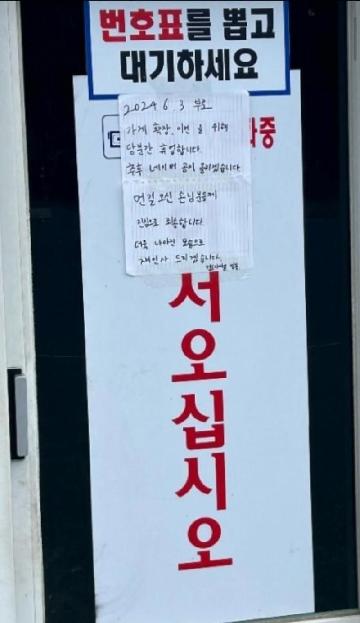 번호표를 뽑고
대기하세요
2024 6. 3 부로
가게 확장. 이전 을 위해
당분간 휴업합니다.
추후 네이버 공지 올리겠습니다
먼길 오신 손님분들께
진심으로 죄송합니다.
더욱 나아진 모습으로
재인사 드리겠습니다.
중
서오십시오